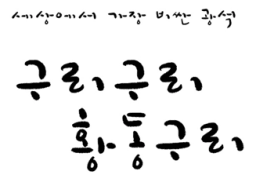 세상에서 가장 비싼 광석
구리, 구리
황동구리